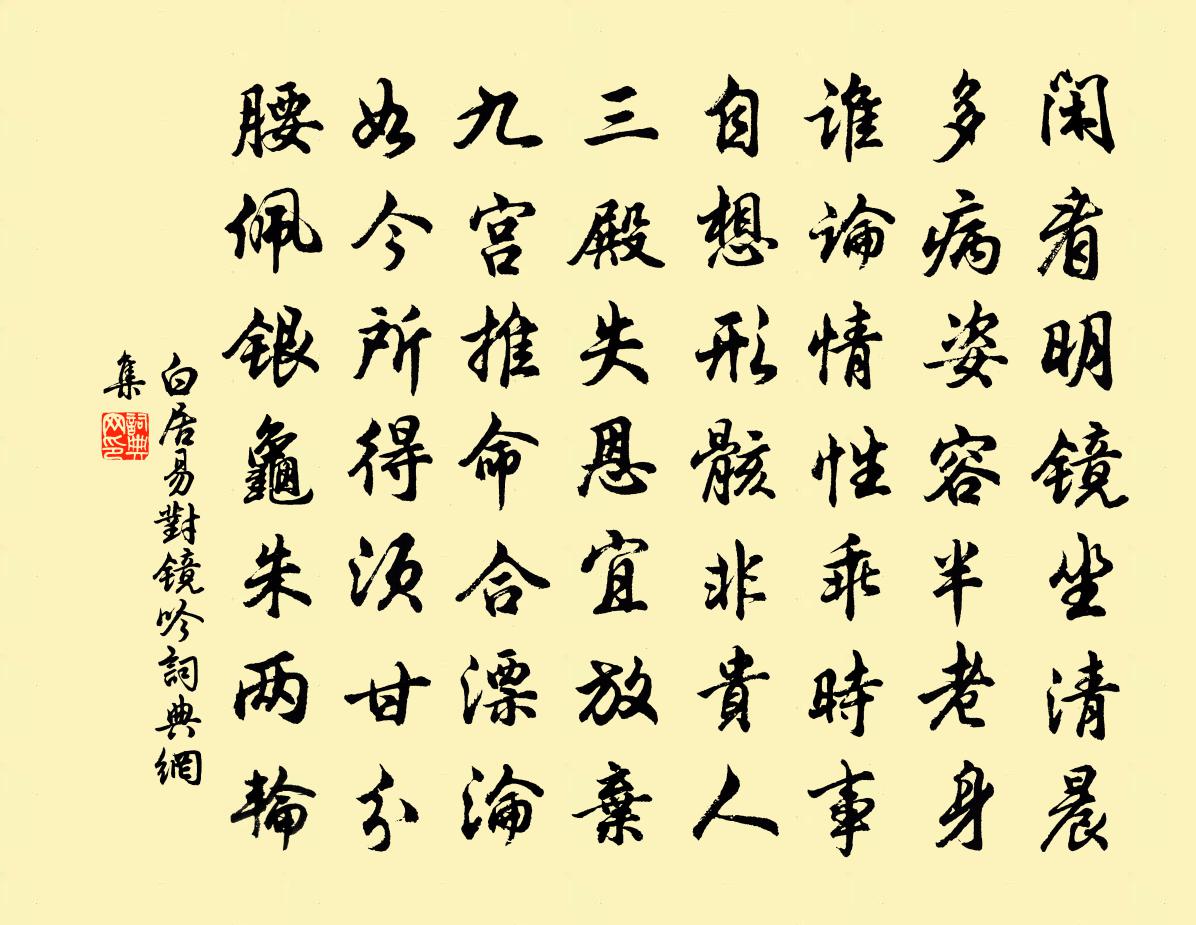 閑看明镜坐清晨
多病姿容半老身
谁論情性乖時事
自想形骸非貴人
三殿失恩宜放棄
九宫推命合漂淪
如今所得须甘分
腰佩銀龜朱两輪
白居易對镜吟詞典網
集
詞典
网印